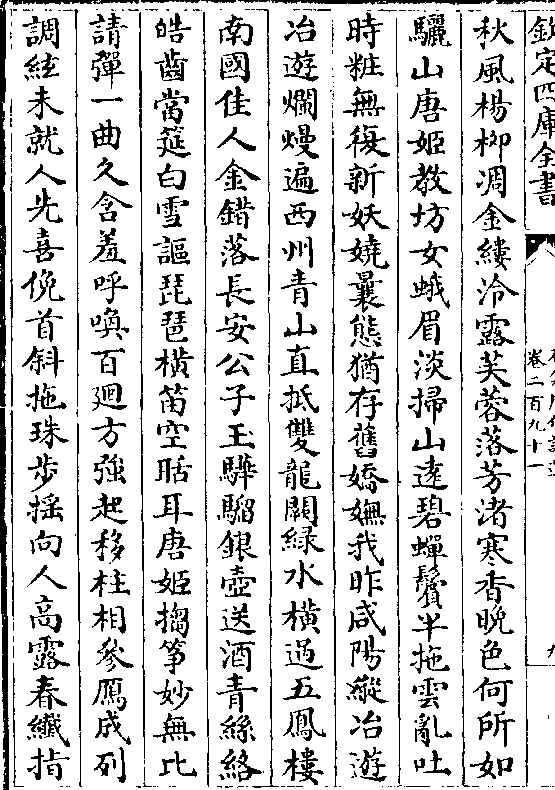 欽定四庫全書
卷二百九十一
九
秋風楊柳凋金縷泠露芙蓉落芳渚寒香晚色何所如
驪山唐姬教坊女蛾眉淡掃山遠碧蟬鬢半拖雲亂吐
時粧無復新妖嬈曩態猶存舊嬌嫵我昨咸陽縱冶遊
冶遊爛熳遍西州青山直抵雙龍闕緑水橫過五鳳樓
南國佳人金錯落長安公子玉驊騮銀壺送酒青絲絡
皓齒當筵白雪謳琵琶橫笛空聒耳唐姬搊箏妙無比
請彈一曲久含羞呼喚百廻方強起移柱相參鴈成列
調絃未就人先喜俛首斜拖珠步揺向人高露春纖指